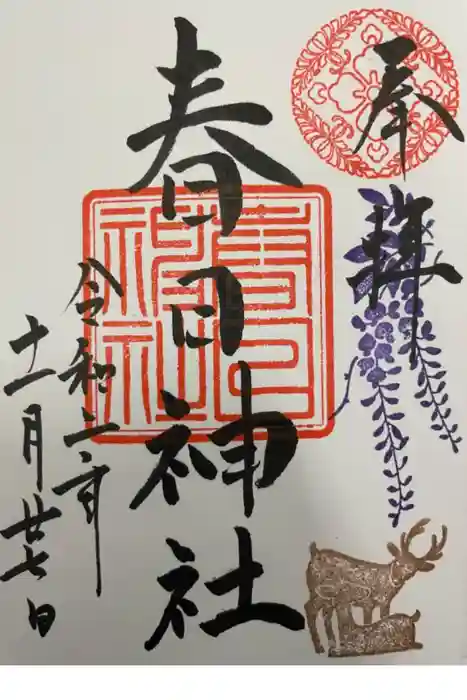 奉拝
春日神社
令和二年
十一月廿七日